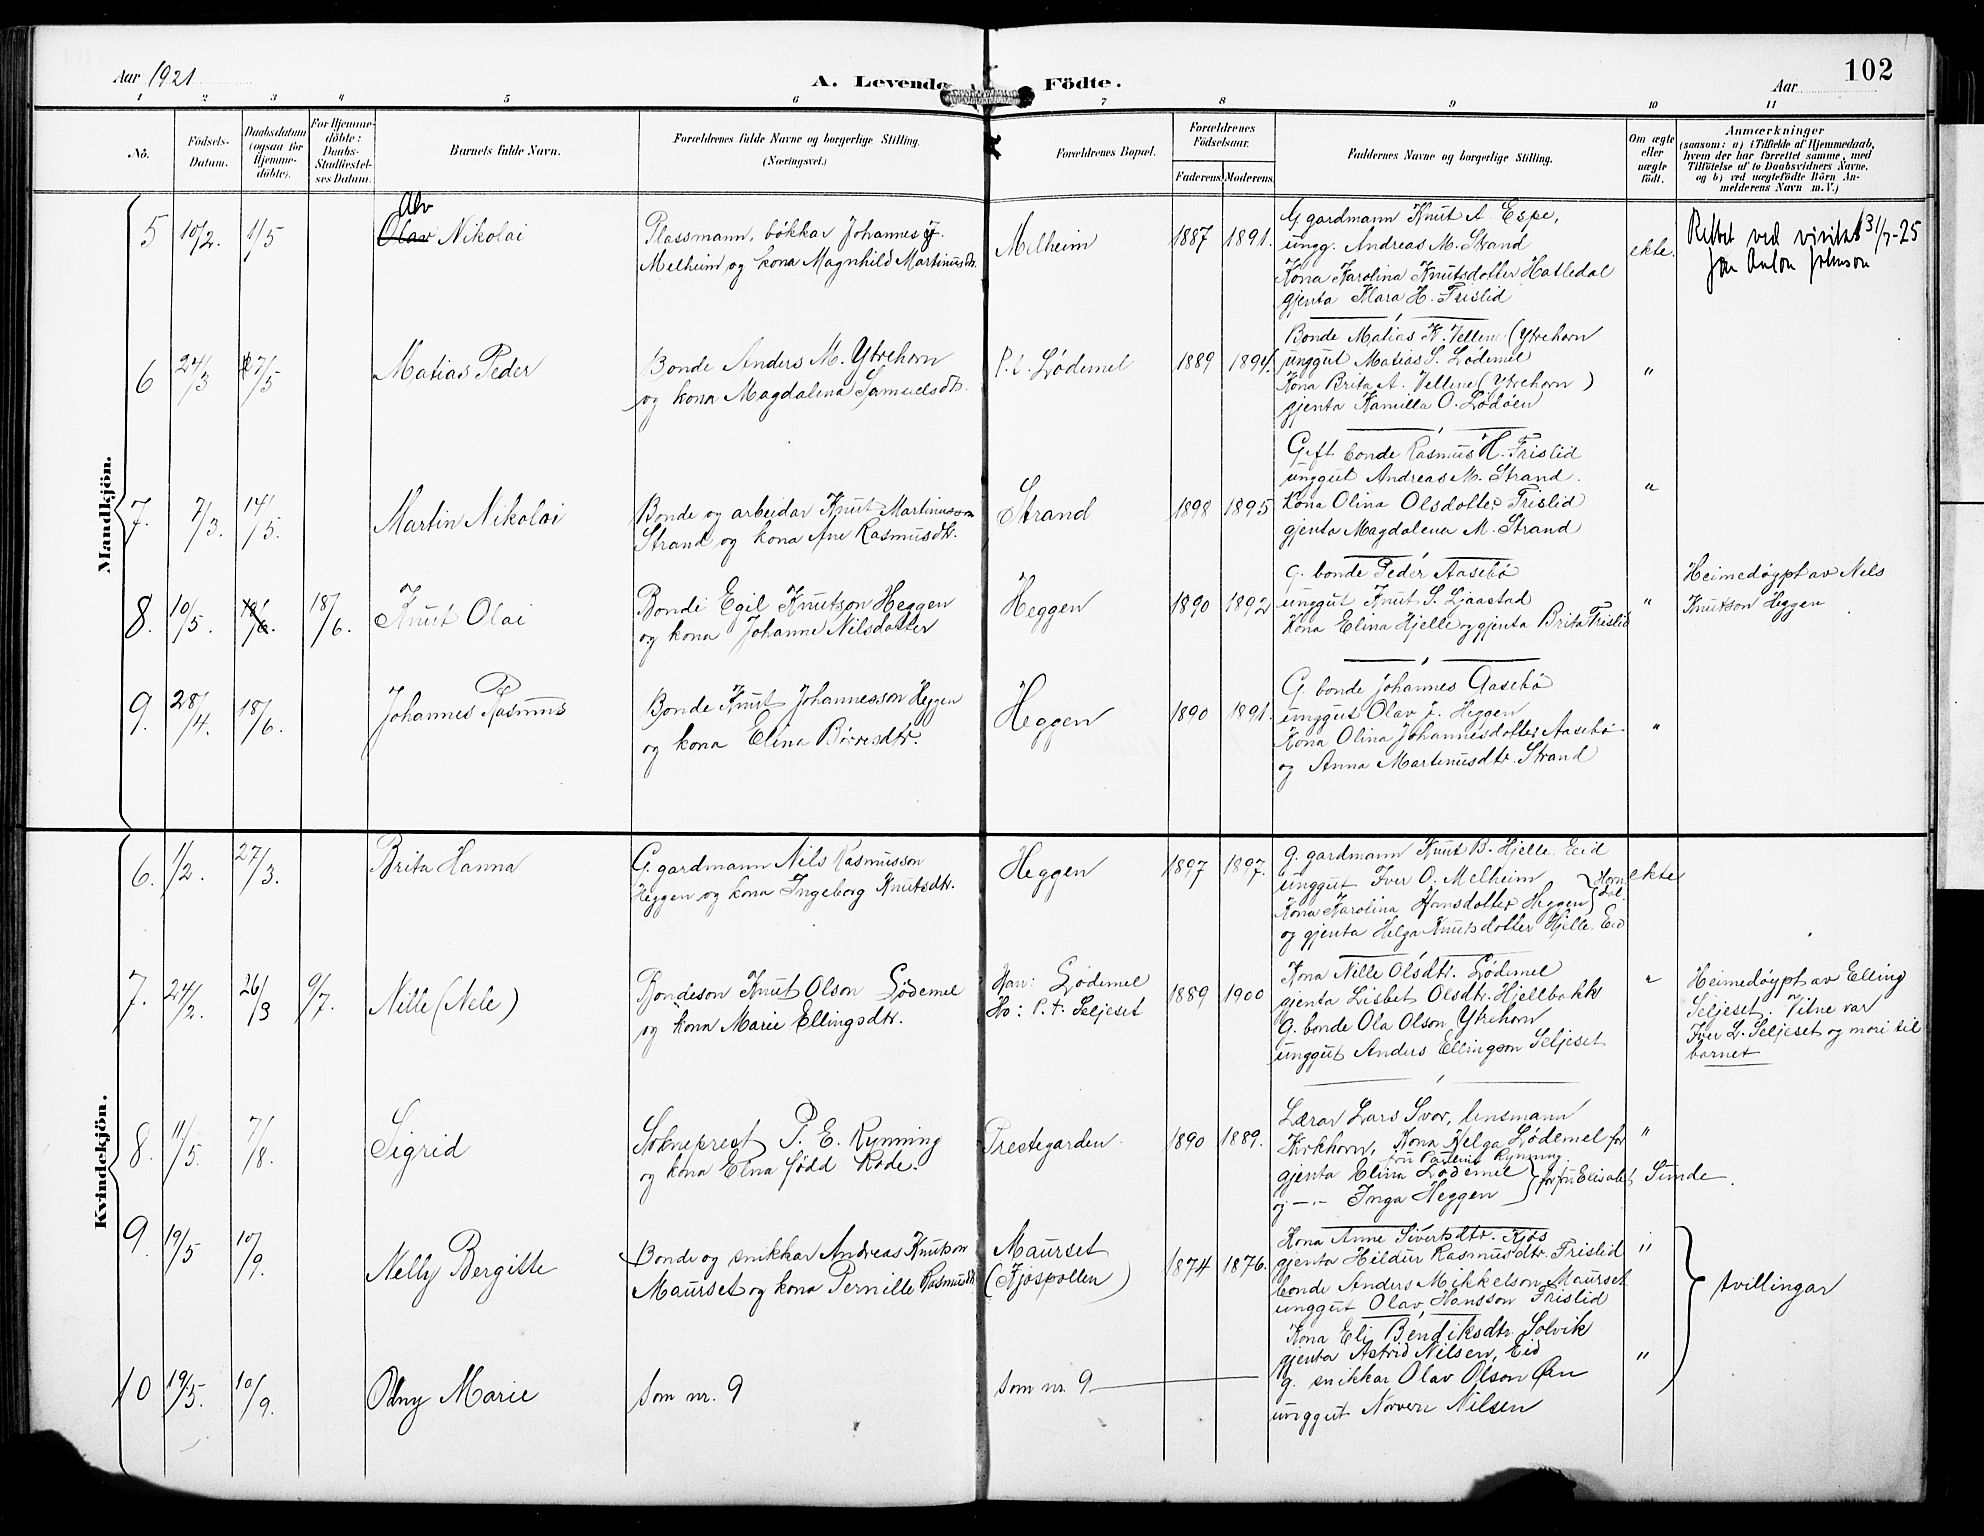 Aar 1921
A. Levende Födte.
Aar
102
1 2 3 4 5 6 7 8 9 10 11
No.
Födsels-
Datum.
Daabsdatum
(ogsaa for
Hjemme-
döbte).
For Hjemme-
döbte:
Daabs-
Stadfæstel-
ses Datum.
Barnets fulde Navn.
Forældrenes fulde Navne og borgerlige Stilling.
(Næringsvei.)
Forældrenes Bopæl.
Forældrenes
Födselsaar.
Faderens. Moderens.
Faddernes Navne og borgerlige Stilling.
Om ægte
eller
uægte
födt.
Anmærkninger
(saasom: a) i Tilfælde af Hjemmedaab,
hvem der har forrettet samme, med
Tilföielse af to Daabsvidners Navne,
og b) ved uægtefödte Börn An-
melderens Navn m. V.)
Mandkjön.
5 10/2. 1/5
Alv
Olav Nikolai
Plassmann, bøkkar Johannes J.
Melheim og kona Magnhild Martinusdtr.
Melheim
1887 1891.
G gardmann Knut A. Espe,
ungg. Andreas M. Strand
Kona Karolina Knutsdotter Hatledal
gjenta Klara H. Frislid
ekte.
Rettet ved visitas 31/7-25
Jon Anton Johnson
6 24/3 7/5
Matias Peder
Bonde Anders M. Ytrehorn
og kona Magdalena Samuelsdtr.
P.t. Lødemel
1889 1894.
Bonde Matias K. Vellene (Ytrehorn
unggut Matias S. Lødemel
Kona Brita A. Vellene (Ytrehorn)
gjenta Kamilla O. Lødøen
"
7. 7/3. 14/5.
Martin Nikolai
Bonde og arbeidar Knut Martinusson
Strand og kona Ane Rasmusdtr.
Strand
1898 1895
Gift bonde Rasmus H. Frislid
unggut Andreas M. Strand.
Kona Olina Olsdotter Frislid
gjenta Magdalena M. Strand
"
8. 10/5. 18/6. 18/6.
Knut Olai
Bonde Egil Knutson Heggen
og kona Johanne Nilsdotter
Heggen
1890 1892
G. bonde Peder Aasebø
unggut Knut S. Ljaastad
Kona Elina Hjelle og gjenta Brita Frislid
"
Heimedøypt av Nels
Knutson Heggen
9. 28/4. 18/6.
Johannes Rasmus
Bonde Knut Johannesson Heggen
og kona Elina Børresdtr.
Heggen
1890 1891.
G. bonde Johannes Aasebø
unggut Olav J. Heggen
Kona Olina Johannesdotter Aasebø
og Anna Martinusdtr. Strand
"
Kvindekjön.
6. 1/2. 27/3.
Brita Hanna
G. gardmann Nils Rasmusson
Heggen og kona Ingeborg Knutsdtr.
Heggen
1897 1897.
g. gardmann Knut B. Hjelle. Eid
unggut Iver O. Melheim
Kona Karolina Hansdotter Heggen } Horn-
dal.
og gjenta Helga Knutsdotter Hjelle. Eid
ekte
7. 24/2. 26/3 9/7.
Nille (Nele)
Bondeson Knut Olson Lødemel
og kona Marie Ellingsdtr.
Han: Lødemel
Ho: P.t. Seljeset
1889 1900
Kona Nille Olsdtr. Lødemel
gjenta Lisbet Olsdtr. Hjellbakk
G. bonde Ola Olson Ytrehorn
unggut Anders Ellingson Seljeset
"
Heimedøypt av Elling
Seljeset. Vitne var
Iver L. Seljeset og mori til
barnet
8. 11/5. 7/8.
Sigrid
Sokneprest P. E. Rynning
og kona Elna fødd Rode.
Prestegarden.
1890 1889.
Lærar Lars Svor, lensmann
Kirkhorn, Kona Helga Lødemel for
fru Pauline Rynning.
gjenta Elina Lødemel
og —"— Inga Heggen } for fru Elisabet Sunde.
"
9. 19/5 10/9.
Nelly Bergitte
Bonde og snikkar Andreas Knutson
Maurset og kona Pernille Rasmusdtr.
Maurset
(Kjøspollen)
1874 1876.
Kona Anne Sivertsdtr. Kjøs
gjenta Hildur Rasmusdtr. Frislid
bonde Anders Mikkelson Maurset
unggut Olav Hansson Frislid
"
tvillingar
10 19/5. 10/9.
Odny Marie
Som nr. 9
Som nr. 9
Kona Eli Bendiksdtr. Solvik
gjenta Astrid Nilsen, Eid
g. snikkar Olav Olson Øen
unggut Norvern Nilsen
"